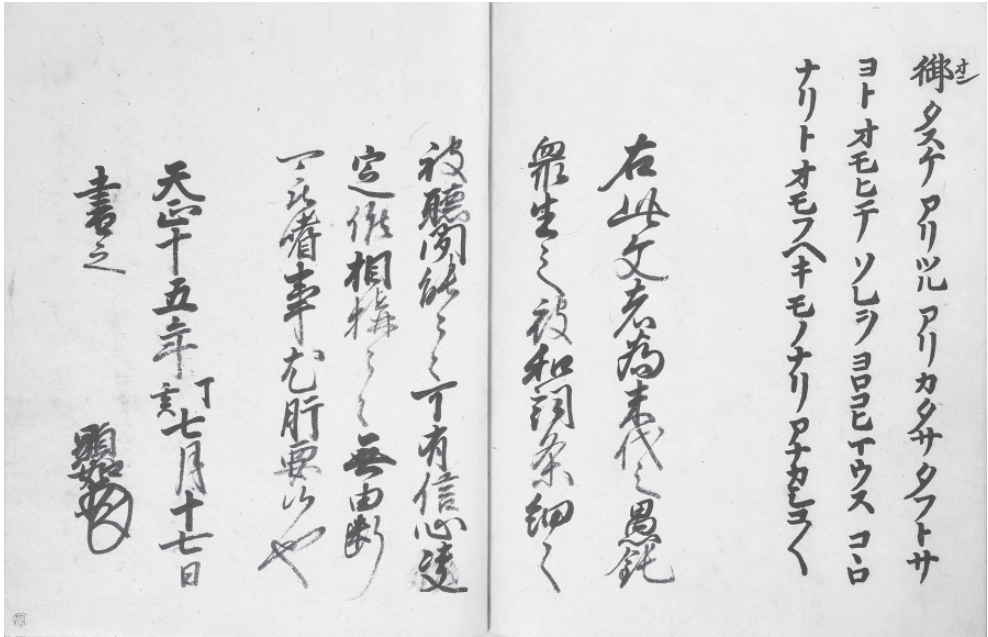 御(オン)タスケアリツルアリカタサタフトサ
ヨトオモヒテソレヲヨロコヒマウスコヽロ
ナリトオモフヘキモノナリアナカシコ〱
右此文者為末代之愚鈍
衆生之被和詞条細々
被聴聞能々可有信心決
定候相構々々無由断
可被嗜事尤肝要候也
天正十五年丁亥七月十七日
書之 顕如